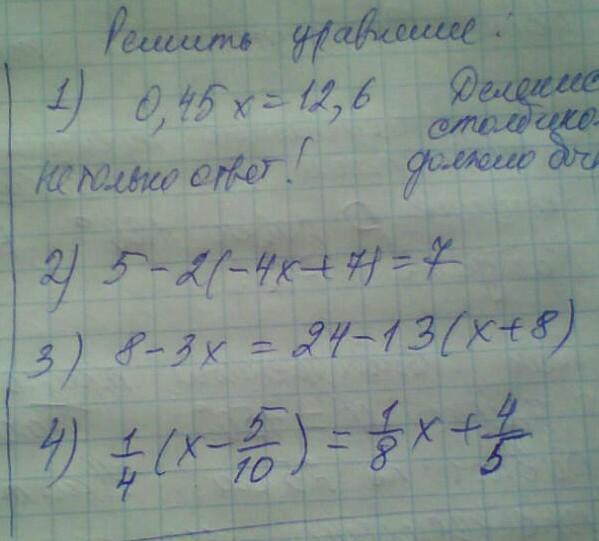 Решить уравнение:
1) 0,45x = 12,6
Деление
столбико
не только ответ!
должно бы
2) 5 - 2(-4x + 7) = 7
3) 8 - 3x = 24 - 13(x + 8)
4) 1/4 (x - 5/10) = 1/8 x + 4/5